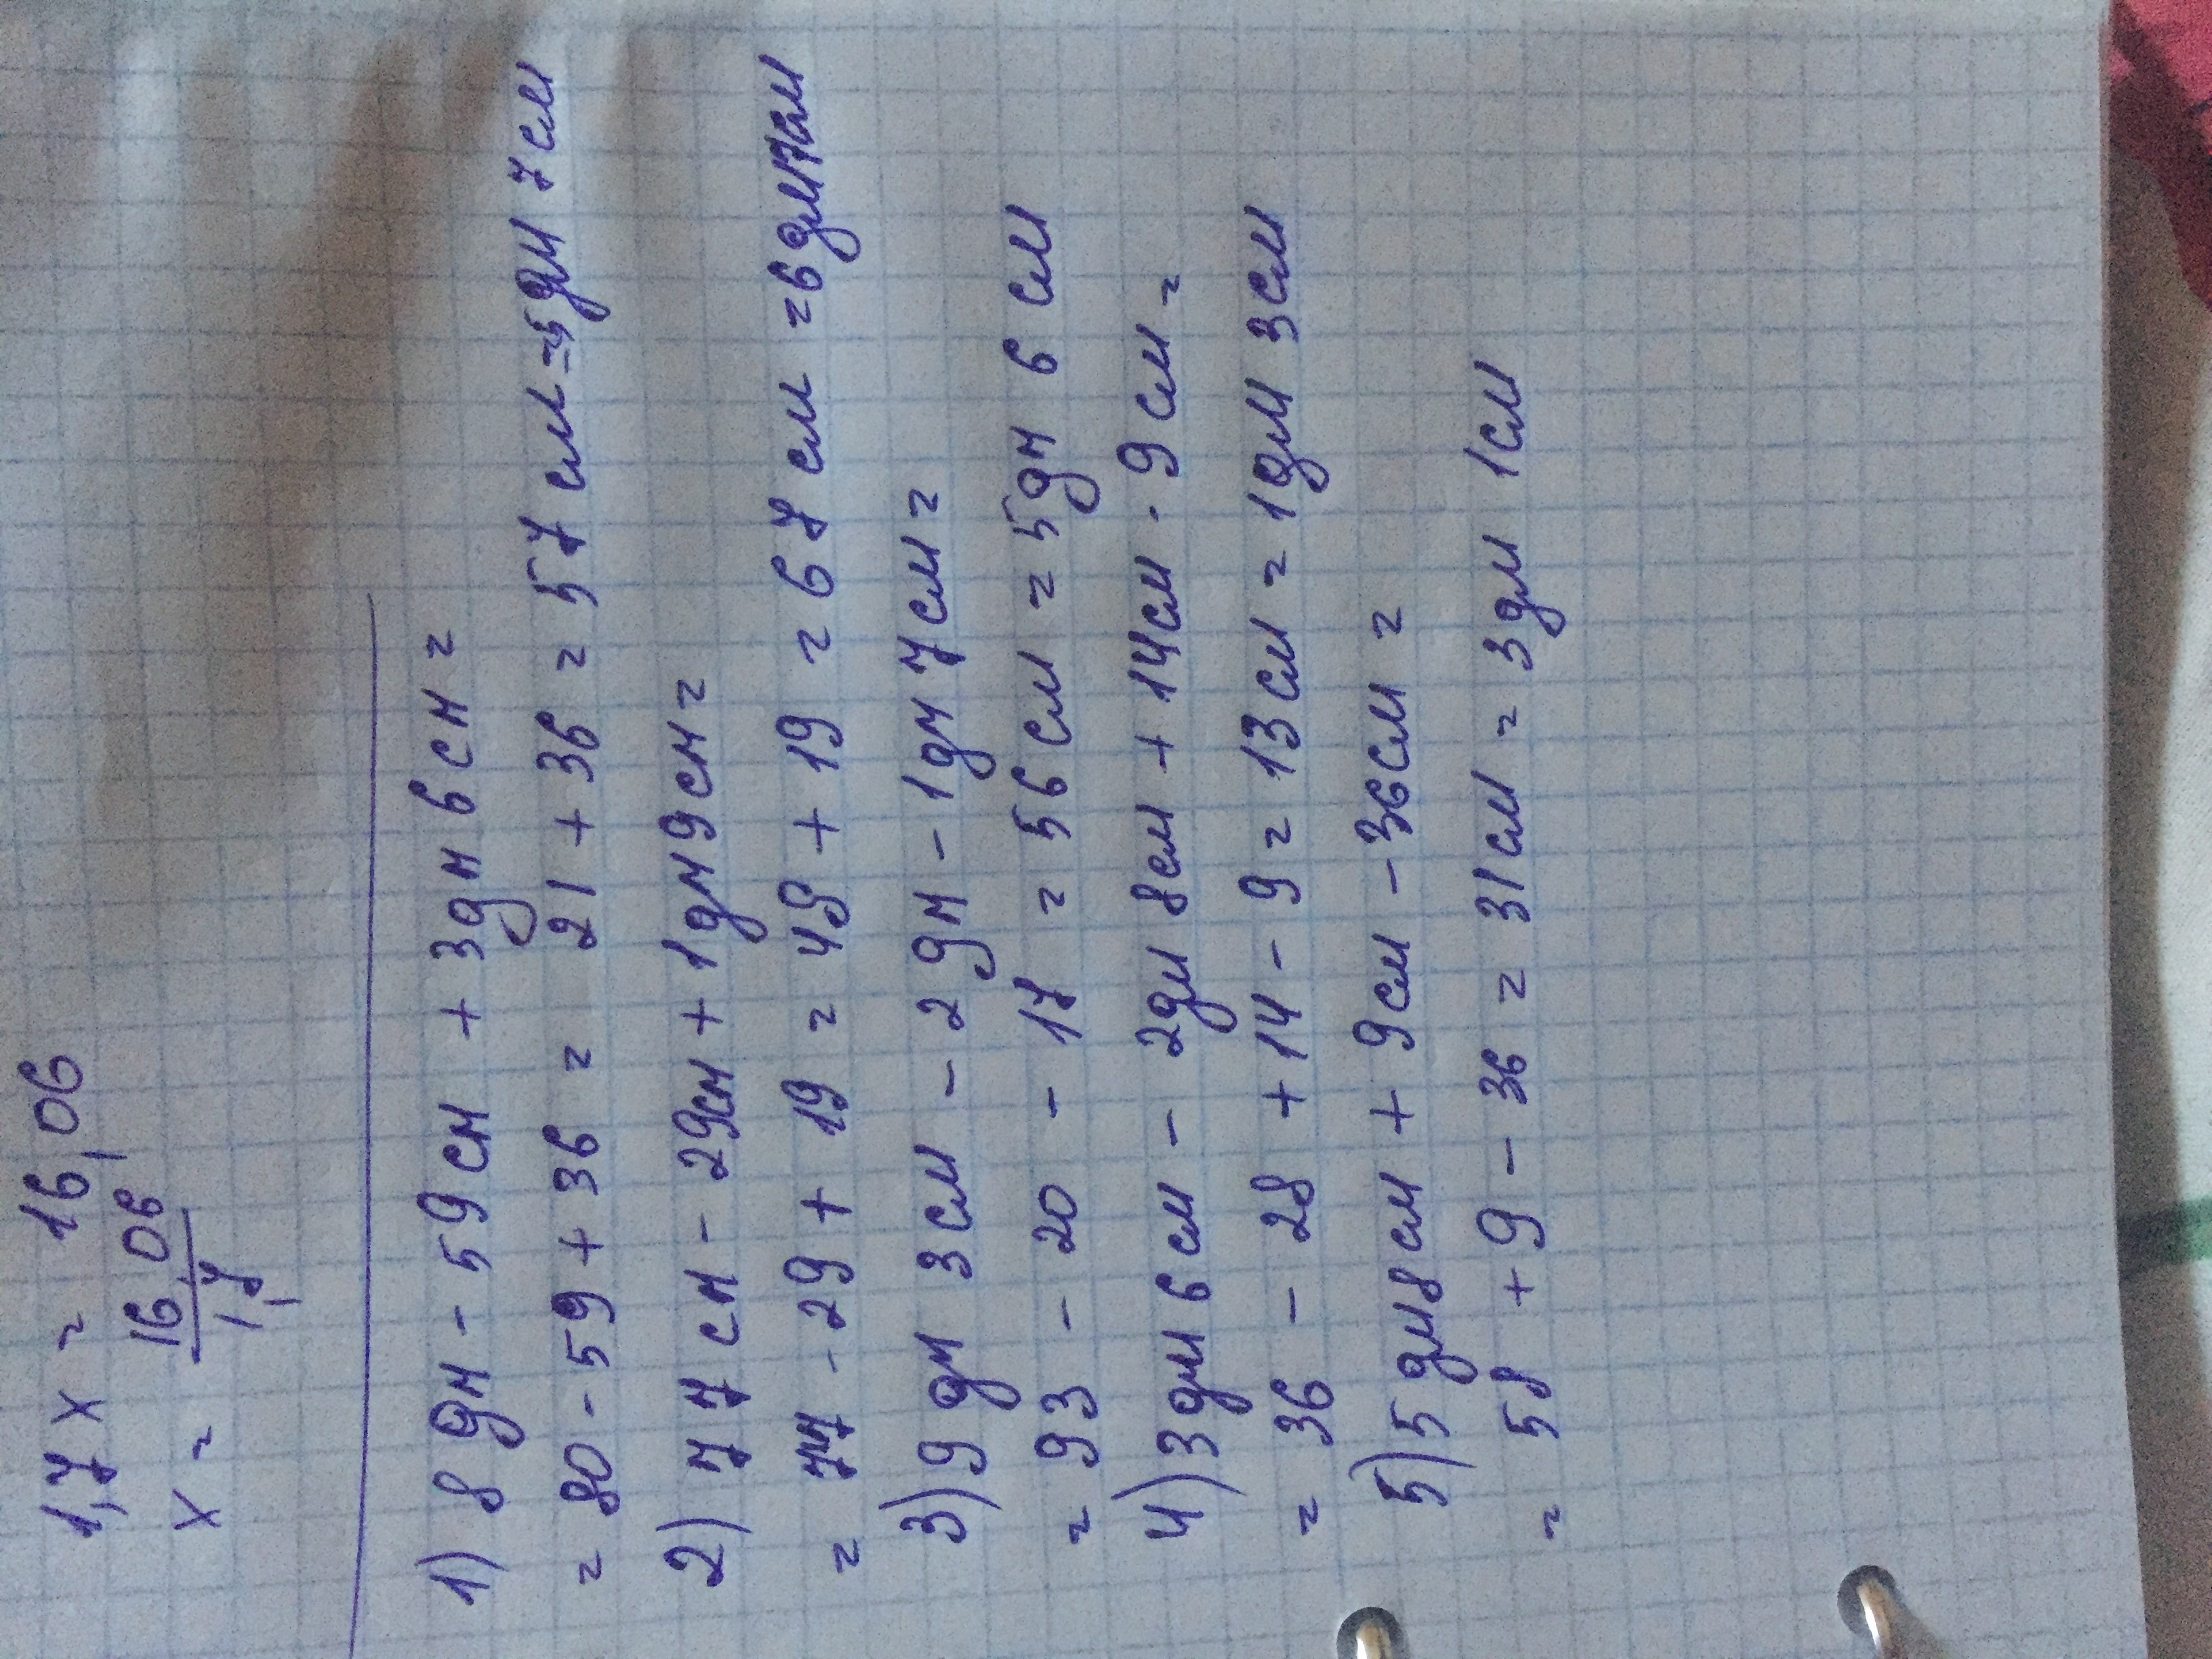 1,7x = 16,06
x = 16,06
1,7
1) 8 дм - 59 см + 3 дм 6 см =
= 80 - 59 + 36 = 21 + 36 = 57 см = 5 дм 7 см
2) 77 см - 29 см + 1 дм 9 см =
= 77 - 29 + 19 = 48 + 19 = 67 см = 6 дм 7 см
3) 9 дм 3 см - 2 дм - 1 дм 7 см =
= 93 - 20 - 17 = 56 см = 5 дм 6 см
4) 3 дм 6 см - 2 дм 8 см + 14 см - 9 см =
= 36 - 28 + 14 - 9 = 13 см = 1 дм 3 см
5) 5 дм 8 см + 9 см - 36 см =
= 58 + 9 - 36 = 31 см = 3 дм 1 см